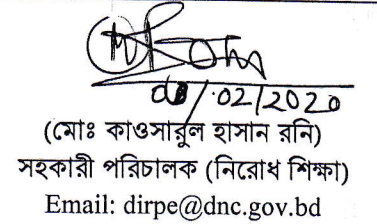 /02/2020
(মোঃ কাওসারুল হাসান রনি)
সহকারী পরিচালক (নিরোধ শিক্ষা)
Email: dirpe@dnc.gov.bd